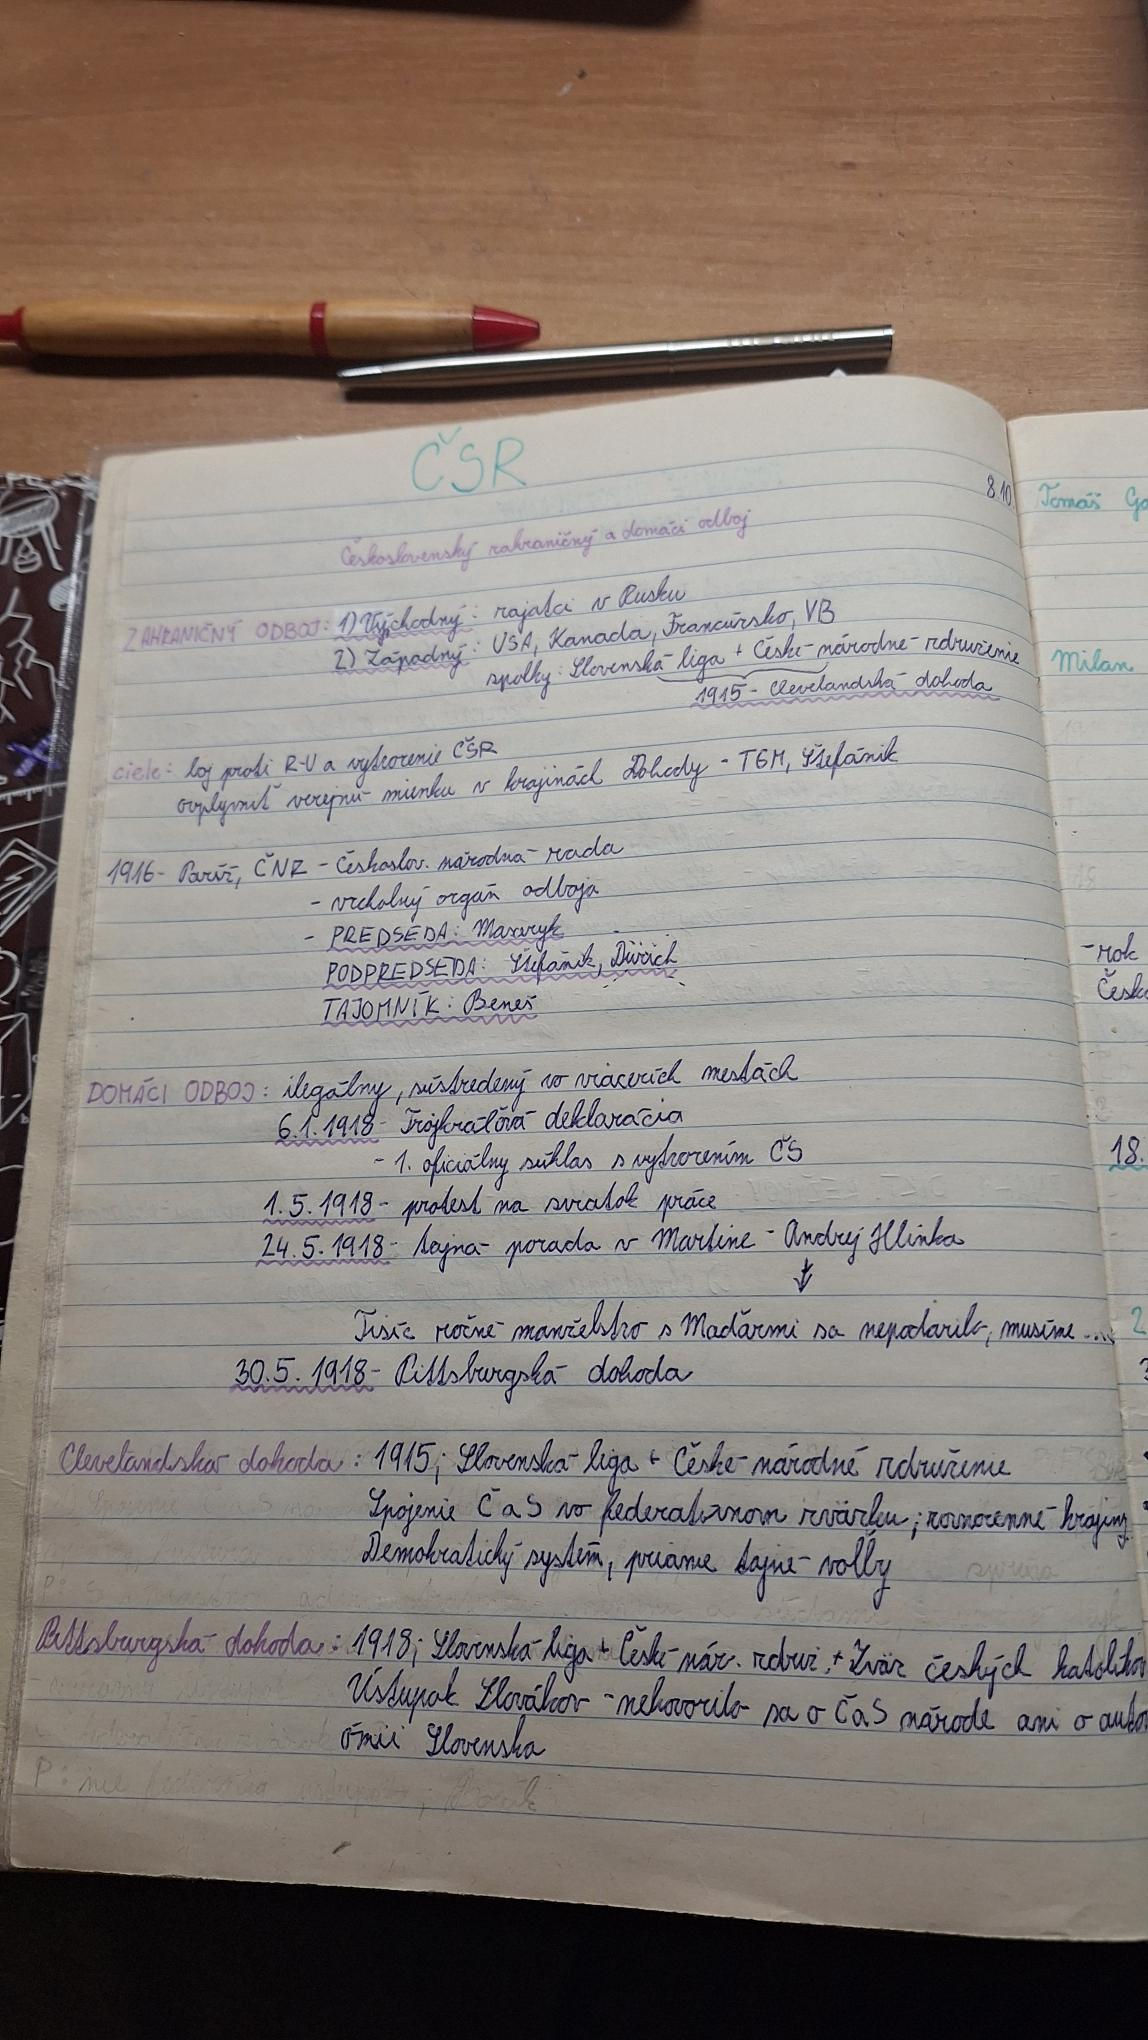 ČSR
8.10.
Československý zahraničný a domáci odboj
ZAHRANIČNÝ ODBOJ: 1) Východný: zajatci v Rusku
2) Západný: USA, Kanada, Francúzsko, VB
spolky: Slovenská liga + České národné združenie
1915 - Clevelandská dohoda
ciele: boj proti R-U a vytvorenie ČSR
ovplyvniť verejnú mienku v krajinách Dohody - TGM, Štefánik
1916 - Paríž, ČNR - Českoslov. národná rada
- vrcholný orgán odboja
- PREDSEDA: Masaryk
PODPREDSEDA: Štefánik, Dürich
TAJOMNÍK: Beneš
DOMÁCI ODBOJ: ilegálny, sústredený vo viacerích mestách
6.1.1918 - Trojkráľová deklarácia
- 1. oficiálny súhlas s vytvorením ČS
1.5.1918 - protest na sviatok práce
24.5.1918 - tajná porada v Martine - Andrej Hlinka
↓
Tisíc ročné manželstvo s Maďarmi sa nepodarilo, musíme ...
30.5.1918 - Pittsburgská dohoda
Clevelandská dohoda: 1915; Slovenská liga + České národné združenie
Spojenie Č a S vo federatívnom zväzku; rovnocenné krajiny
Demokratický systém, priame tajné voľby
Pittsburgská dohoda: 1918; Slovenská liga + České nár. združ. + Zväz českých katolíkov
Ústupok Slovákov - nehovorilo sa o Č a S národe ani o auto
ómii Slovenska
Tomáš Ga
Milan
- rok
Česk
18.
2